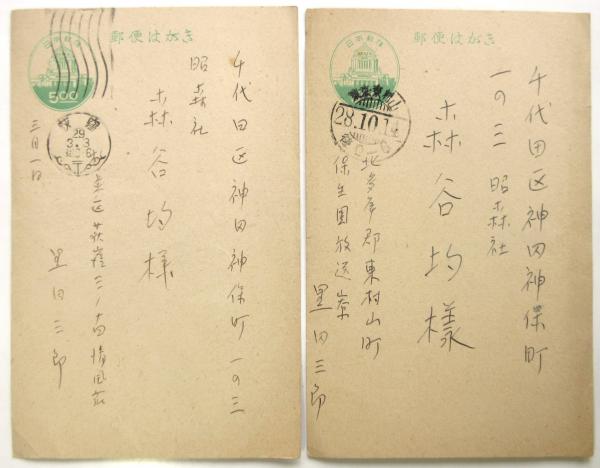 郵便はがき
日本郵便
5.00
29
3.3
千代田区神田神保町一の三
昭森社
森谷均様
三月一日
杉並区荻窪三ノ一四清風荘
黒田三郎
郵便はがき
日本郵便
28.10.14
千代田区神田神保町
一の三 昭森社
森谷均様
北多摩郡東村山町
保生園放送寮
黒田三郎